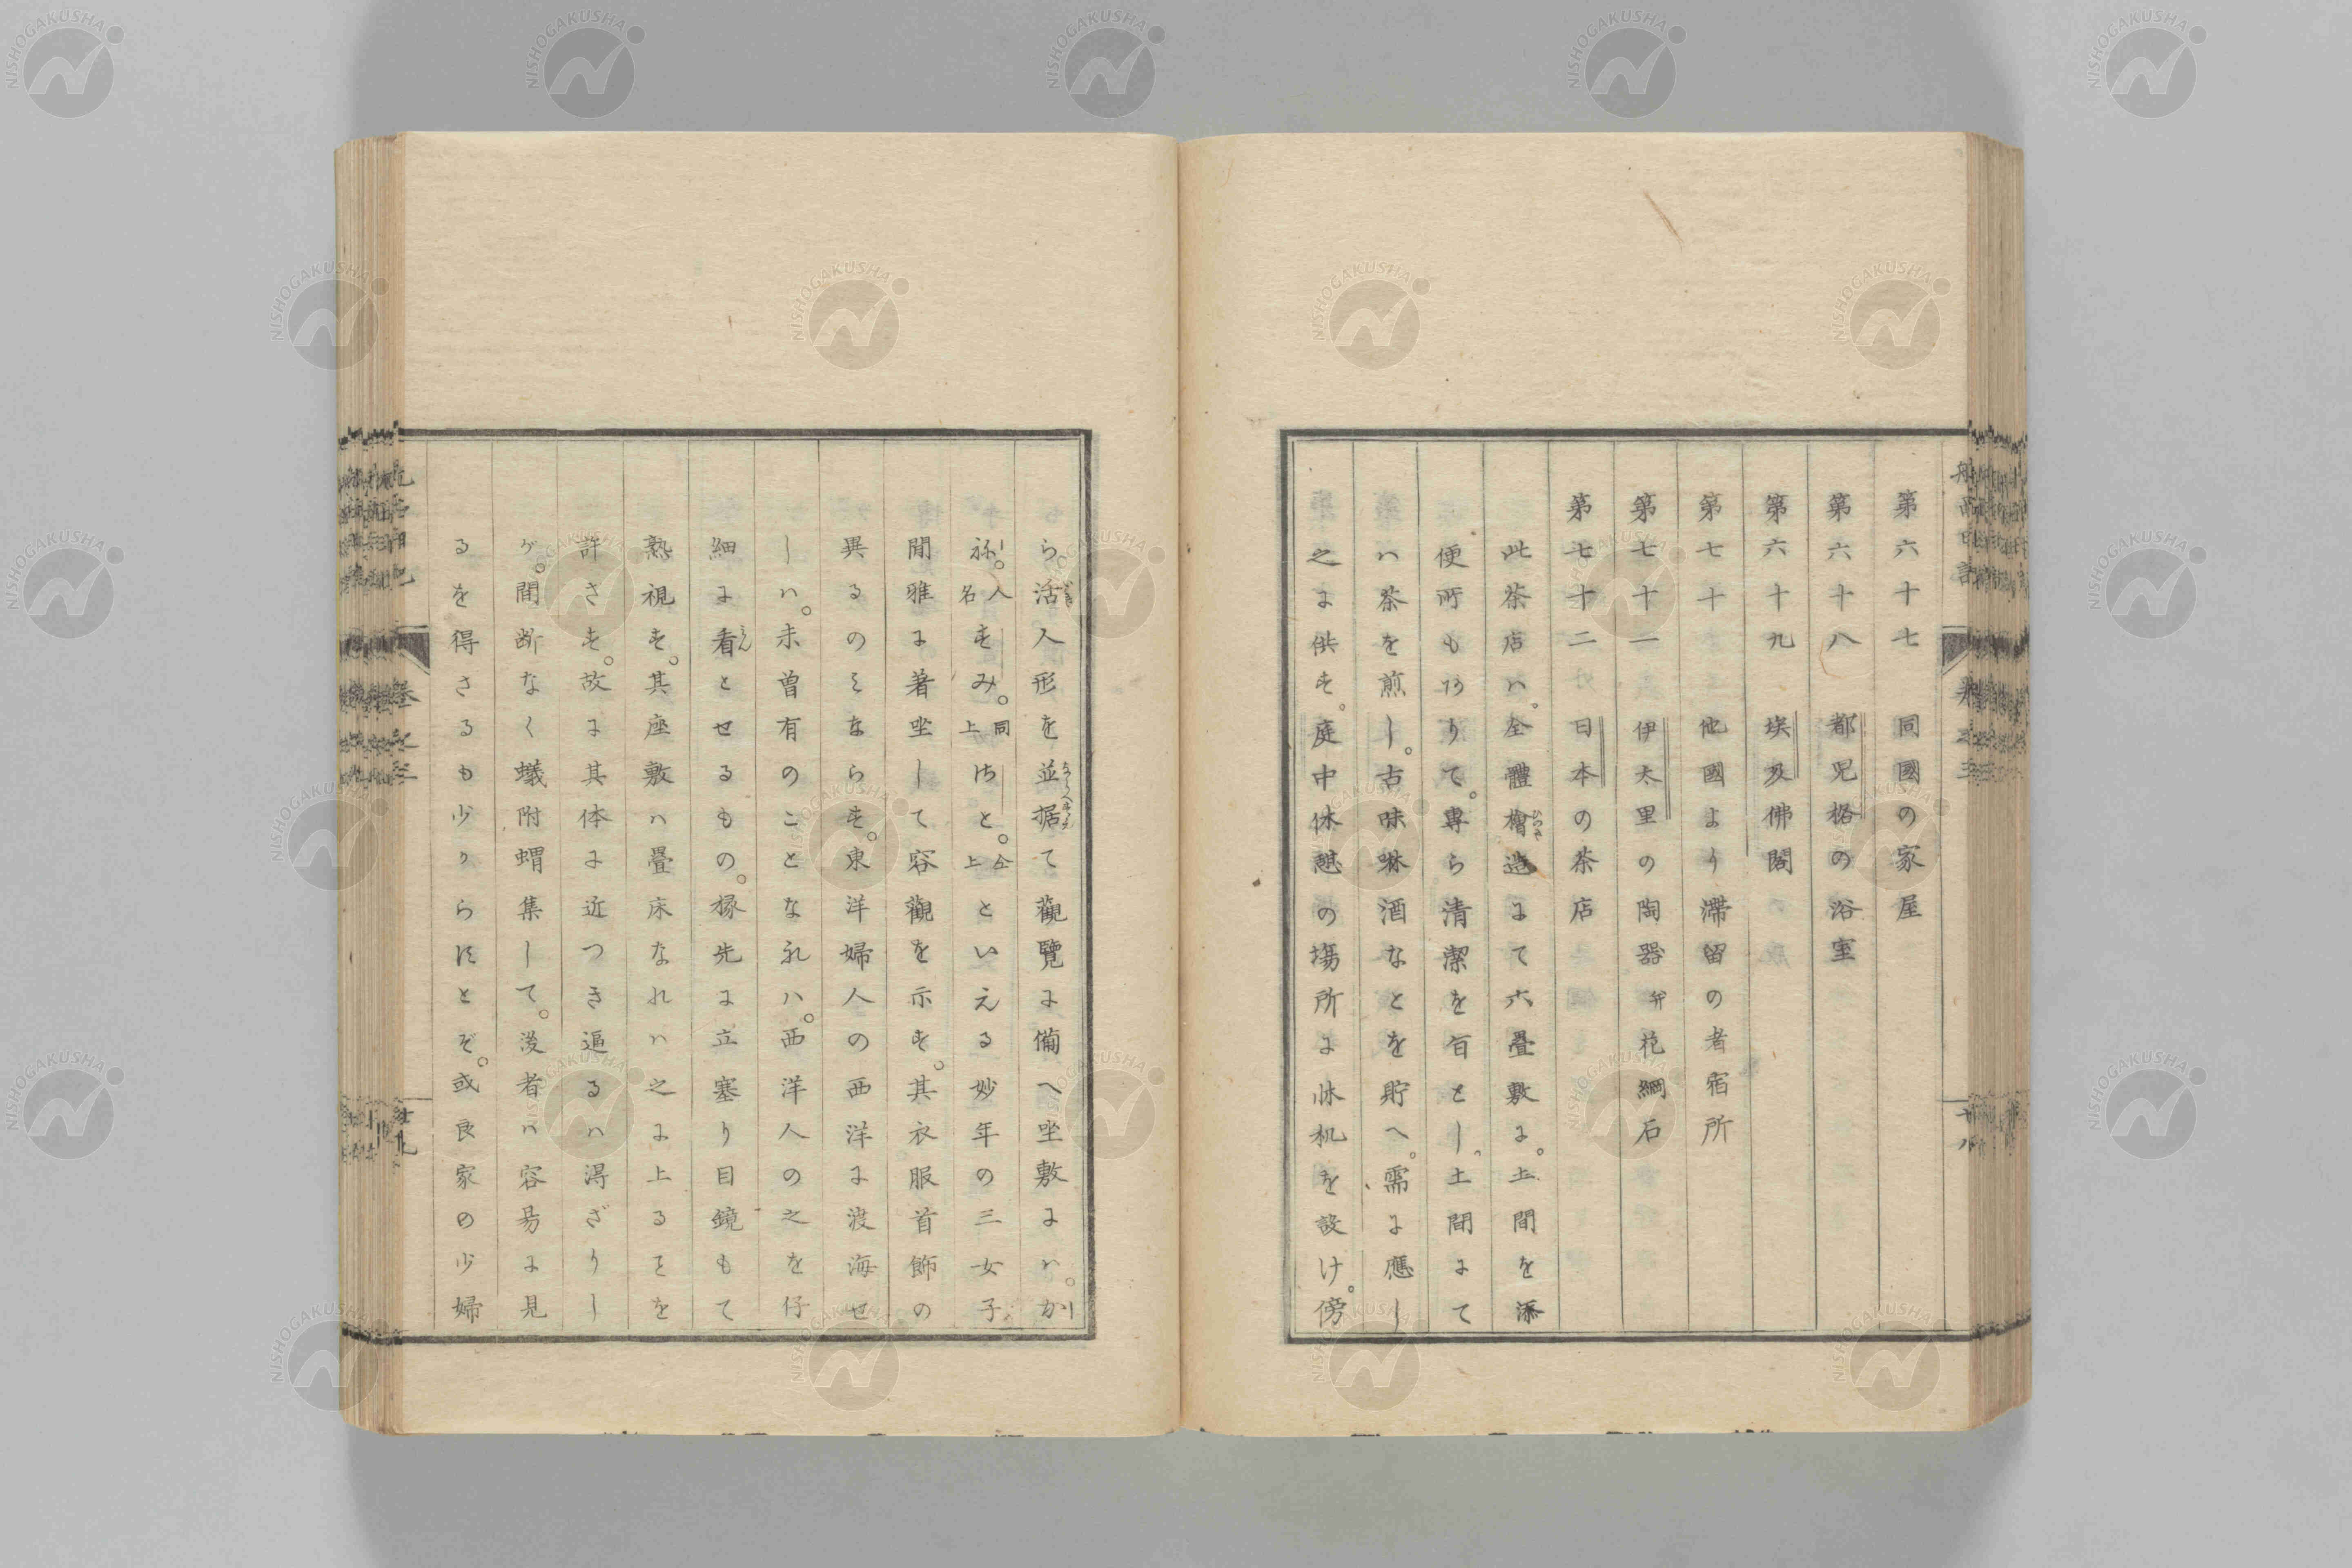 第六十七 同國の家屋
第六十八 都児格の浴室
第六十九 埃及佛閣
第七十 他國より滞留の者宿所
第七十一 伊太里の陶器并花綱石
第七十二 日本の茶店
此茶店ハ。全體檜造にて六畳敷に。土間を添
便所もありて。専ら清潔を旨とし。土間にて
ハ茶を煎し。古味啉酒なとを貯へ。需に應し
之に供す。庭中休憩の塲所に床机を設け。傍
ら。活人形を並据て觀覧に備へ坐敷にハ。か
ね。人名すみ。同上さと。仝上といえる妙年の三女子
閒雅に著坐して容觀を示す。其衣服首飾の
異るのミならす。東洋婦人の西洋に渡海せ
しハ。未曽有のことなれハ。西洋人の之を仔
細に看とせるもの。椽先に立塞り目鏡もて
熟視す。其座敷ハ畳床なれハ之に上ることを
許さす。故に其体に近つき逼るハ得ざりし
ゲ。間断なく蟻附蝟集して。後者ハ容易に見
るを得さるも少からすとぞ。或良家の少婦
航西日記
巻之三
十八
NISHOGAKUSHA